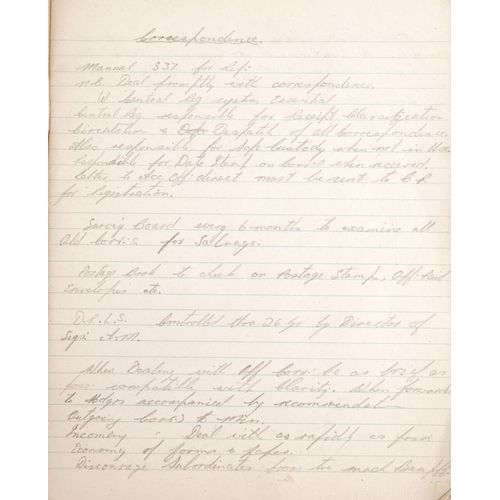 Correspondence.
Manual 537 for Ref:
N.B. Deal promptly with correspondence.
Central Reg system Essential
Central Reg. responsible for Receipt Classification
Circulation & Despatch of all Correspondence
Also responsible for safe custody when not in Use
Responsible for Date Stamp on Corris when received.
Letter to Acc Off direct must be sent to C.R
for Registration.
Survey Board every 6 months to examine all
Old Corris for Salvage.
Postage Book to check on Postage Stamps, Off. Paid
Envelopes etc.
D.R.L.S. Controlled Hrs 26 Gr by Director of
Sigs A.M.
When Dealing with Off Corris be as brief as
poss compatible with Clarity. When forwarded
to Hdqrs accompanied by recommendat
Outgoing
Incoming. Deal with as rapidly as poss
Economy of forms & paper.
Discourage Subordinates from too much